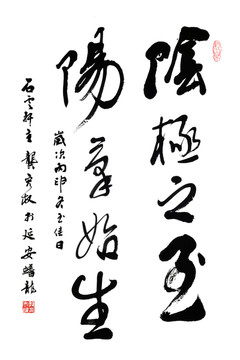 陰極之至
陽氣始生
歲次丙申冬至佳日
石雲軒主龔安淑於延安蟠龍